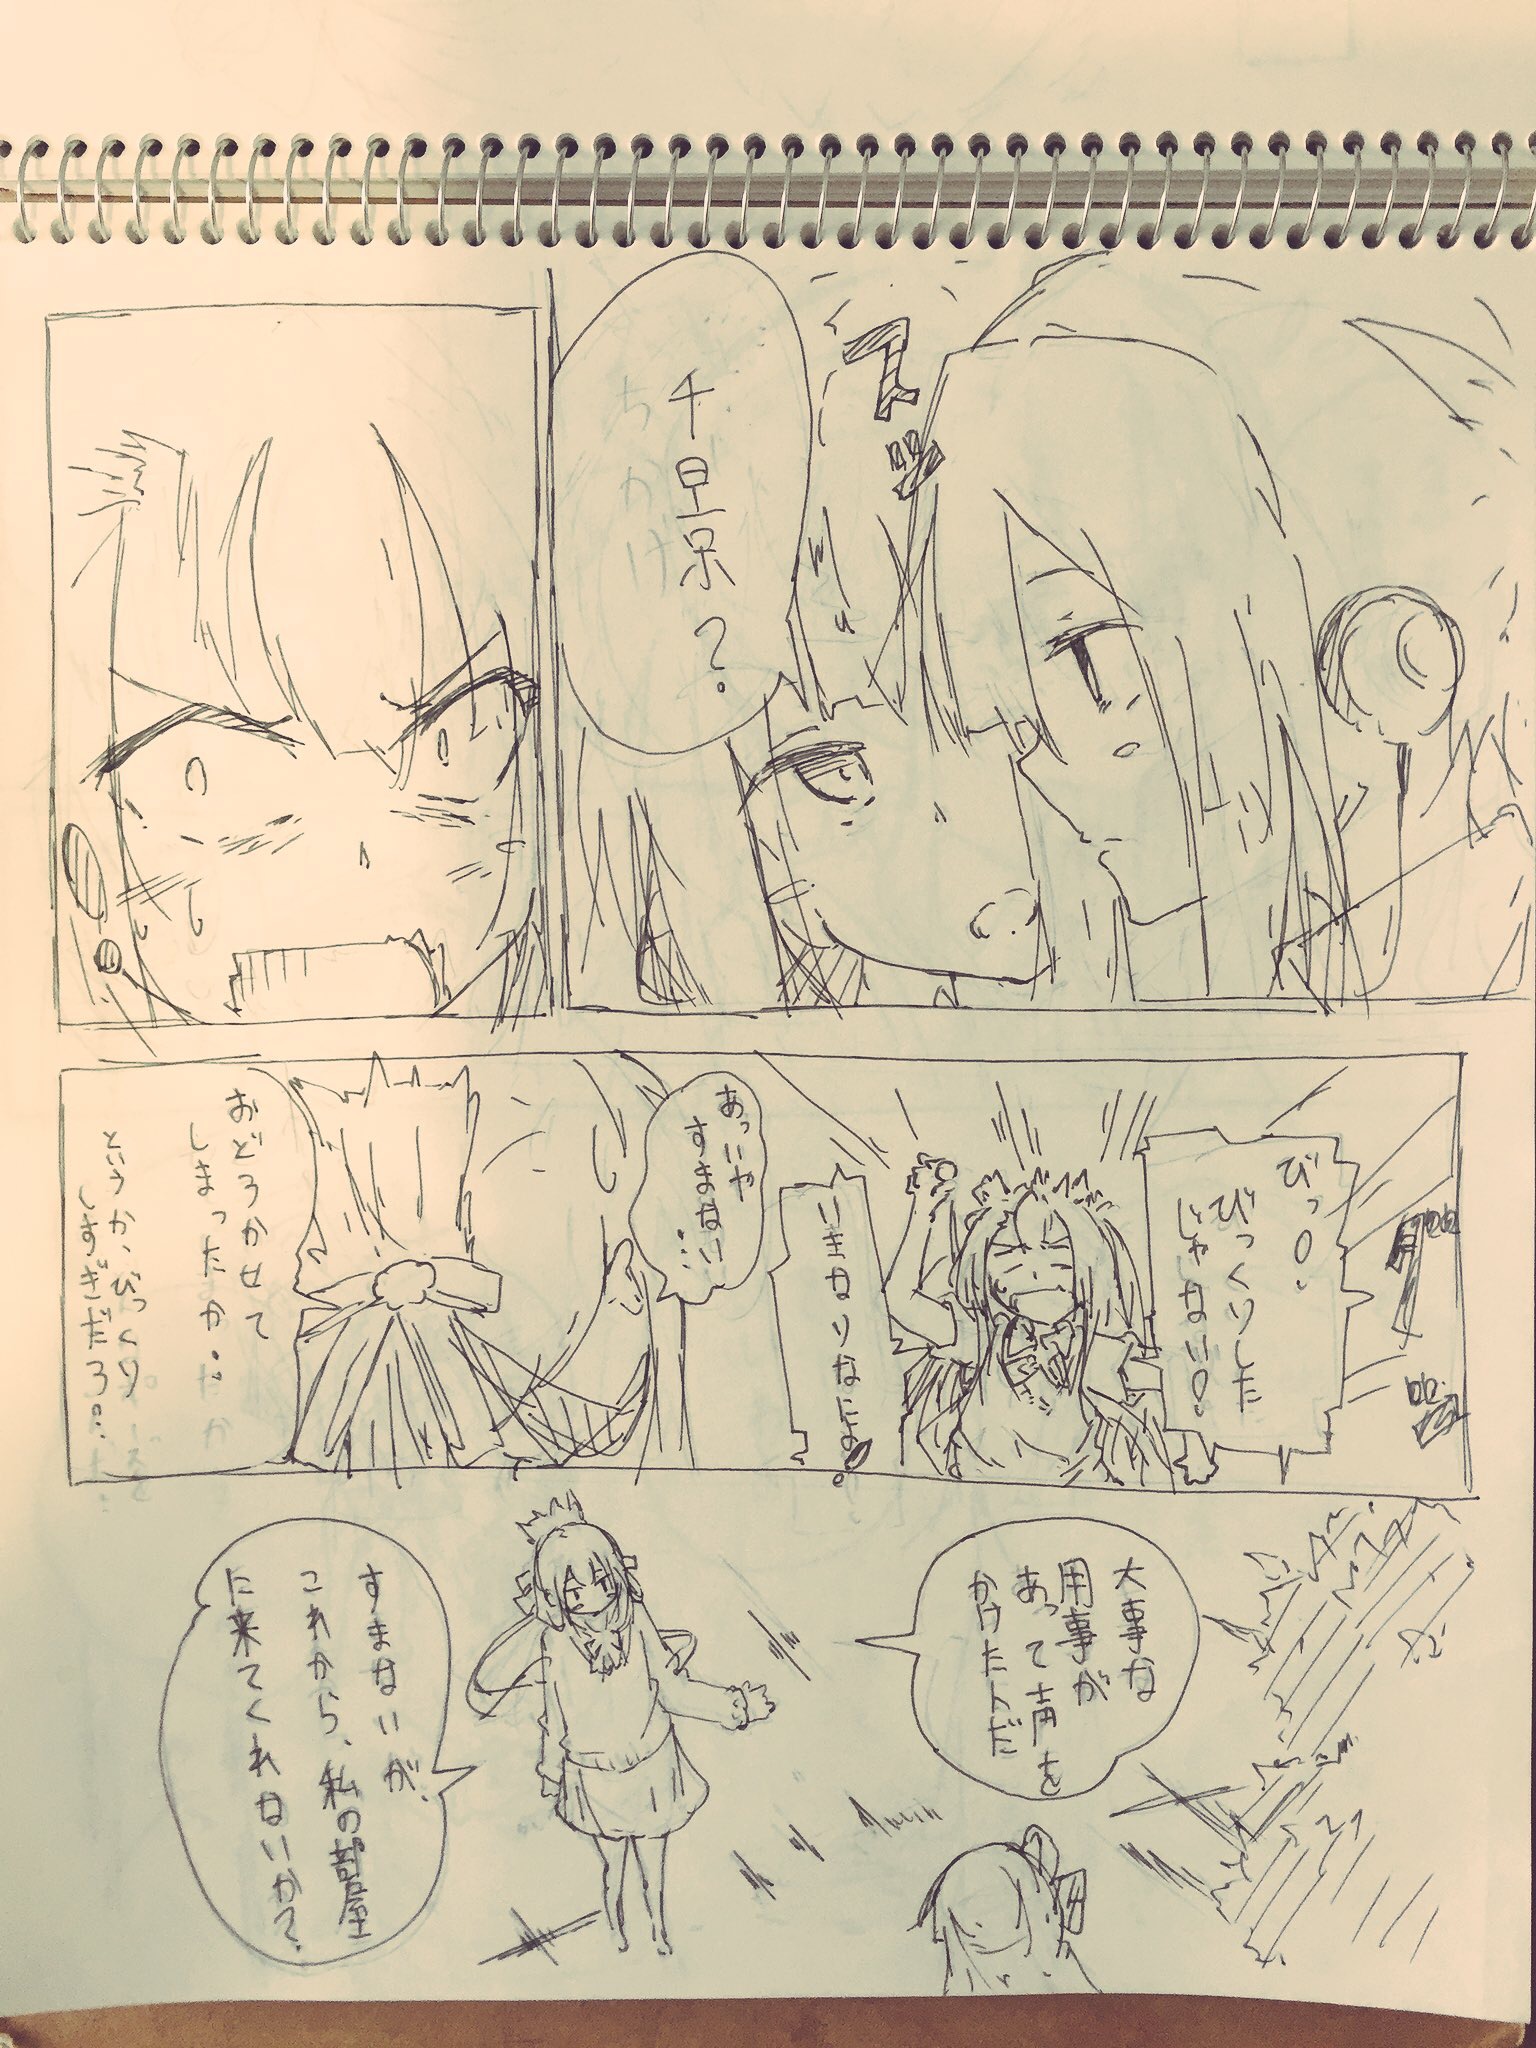 千景？
びっ！
びっくりした
じゃない！
いきなりなによ！
あっいや
すまない…
おどろかせて
しまったか…
というか、びっくり
しすぎだろ…
大事な
用事が
あって声を
かけたんだ
すまないが、
これから、私の部屋
に来てくれないか？